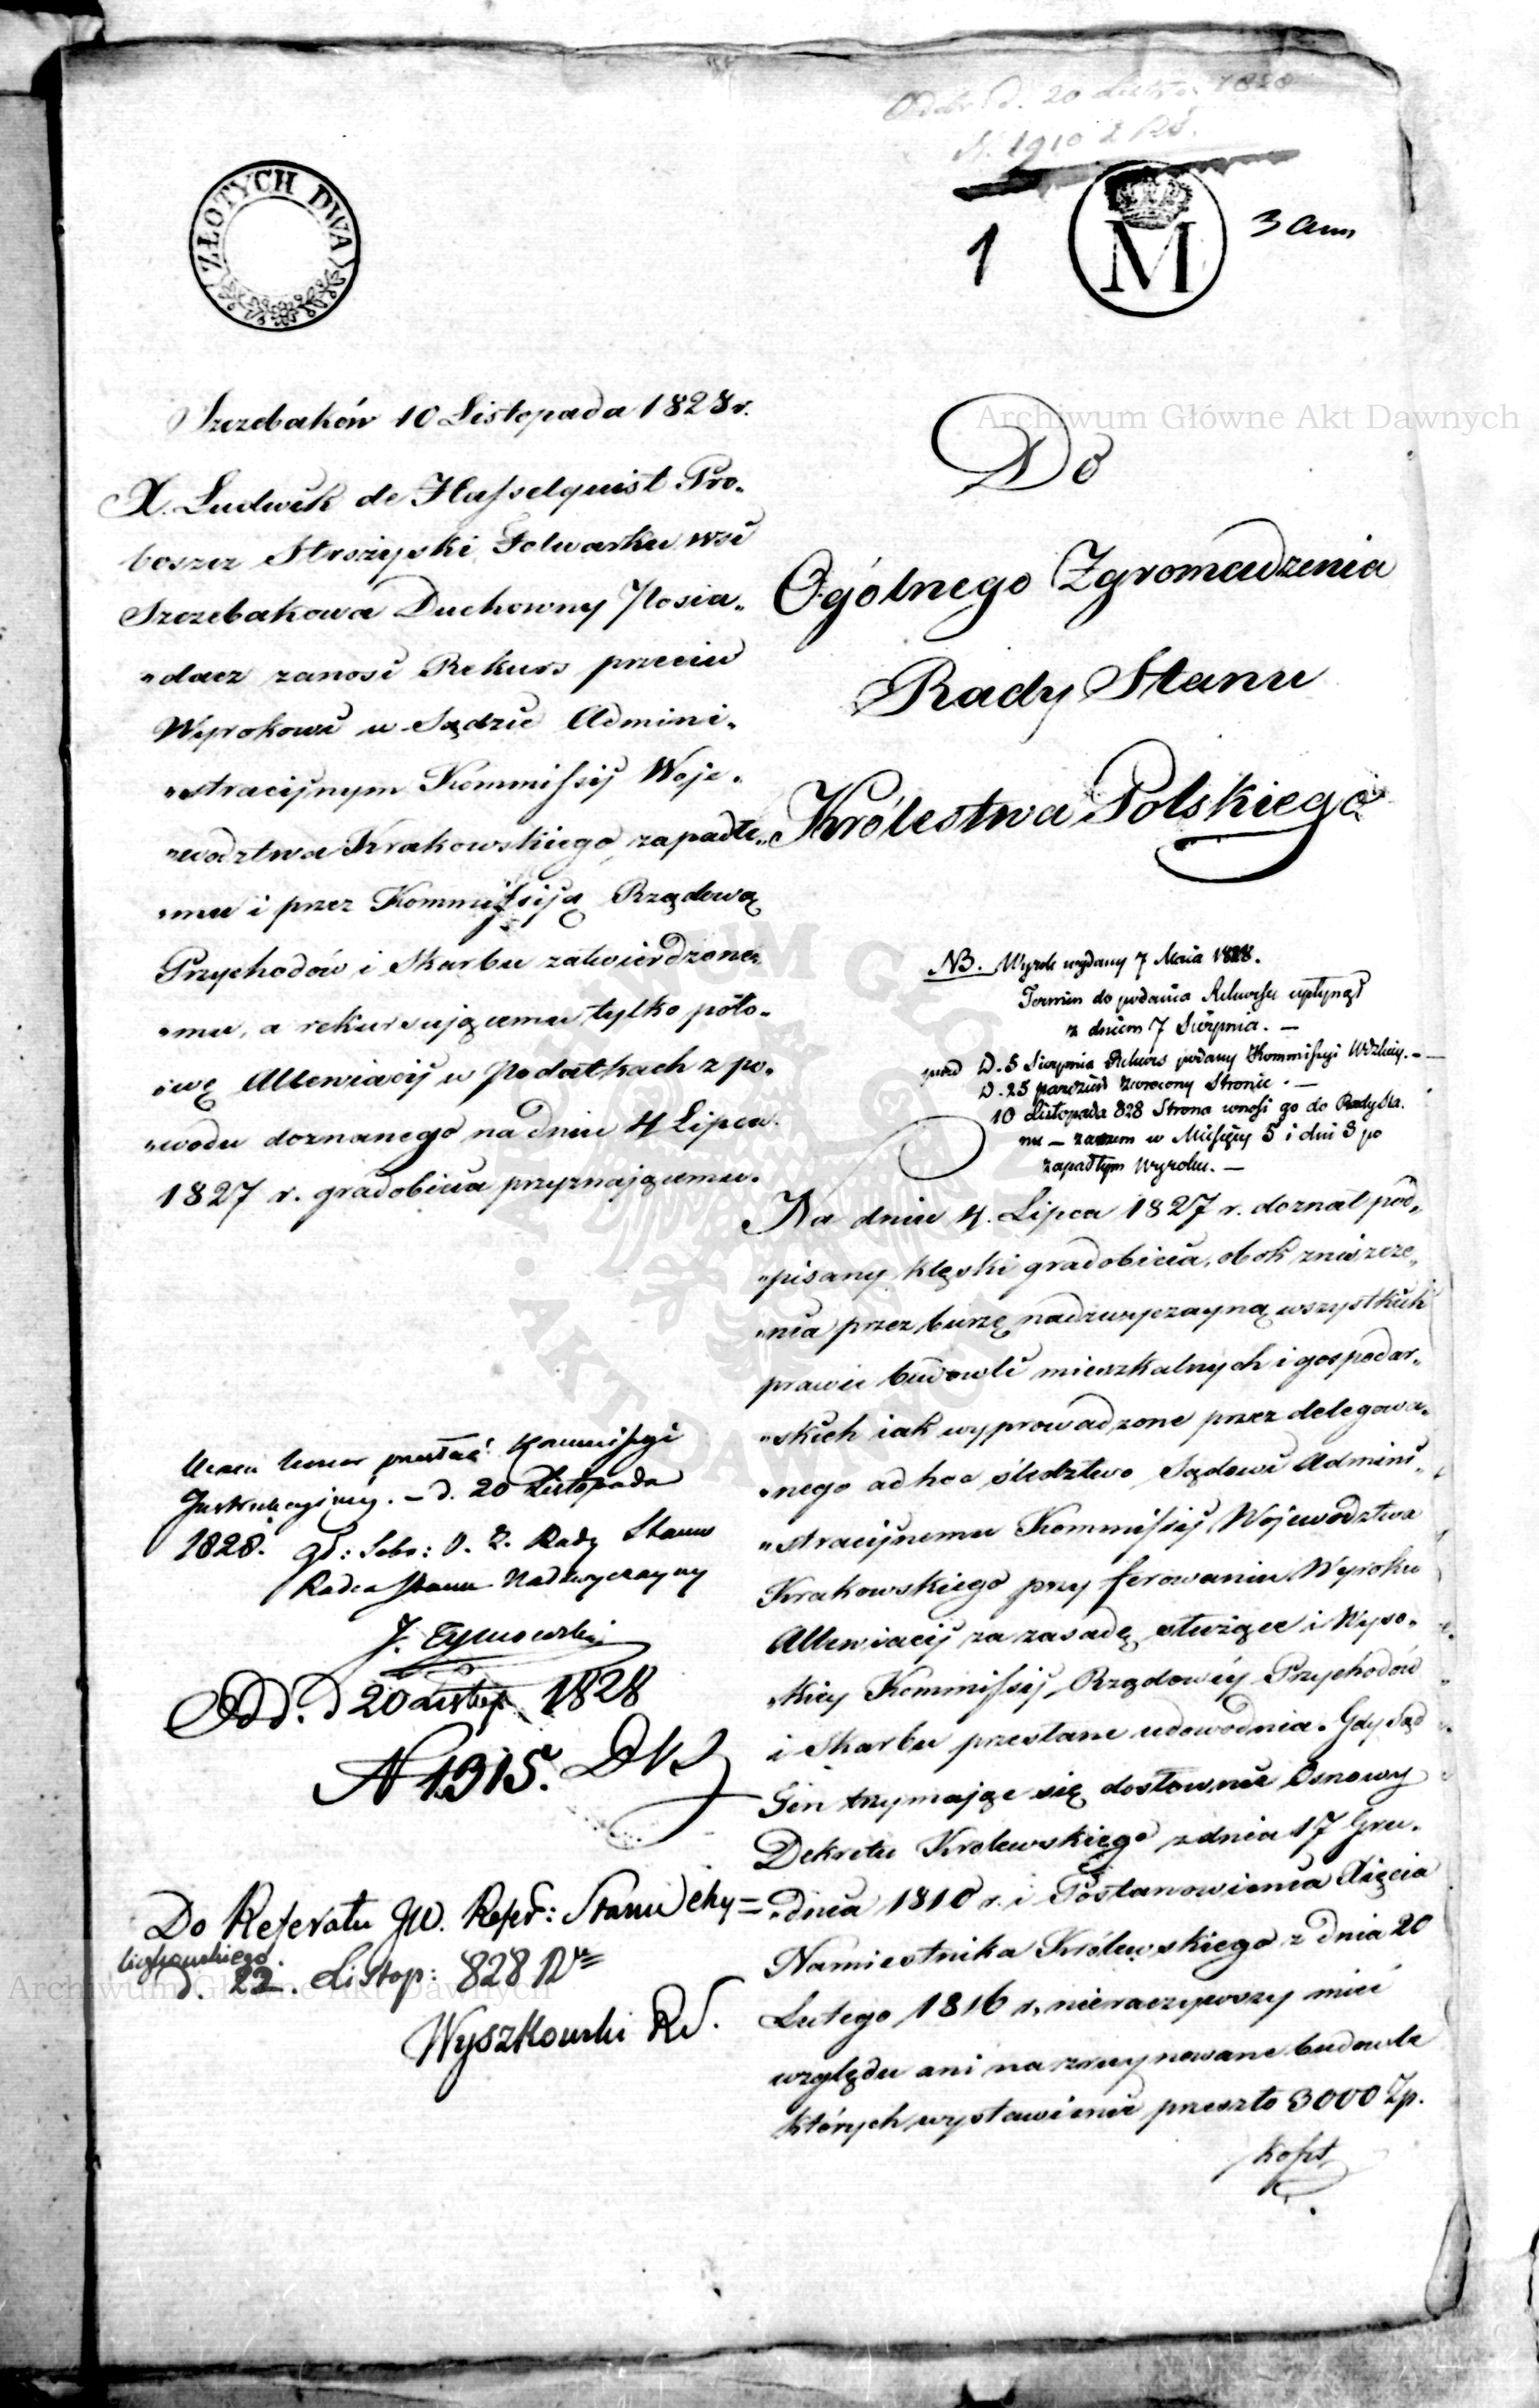 Odebr. d. 20 Listop. 1828
N. 1910 2 RS.
ZŁOTYCH DWA
1
M
3 Ann
Szczebaków 10 Listopada 1828 r.
X. Ludwik de Hasselquist Pro„
boszcz Strożyski Folwarku wsi
Szczebakowa Duchowny Posia„
„dacz zanosi Rekurs przeciw
Wyrokowi w Sądzie Admini„
„stracijnym Kommissij Woje„
„wodztwa Krakowskiego zapadłe„
„mu i przez Kommissiją Rządową
Przychodów i Skarbu zatwierdzone„
„mu, a rekursującemu tylko poło„
„wę Allewiacij w Podatkach z po„
„wodu doznanego na dniu 4 Lipca
1827 r. gradobicia przyznającemu.
Do
Ogólnego Zgromadzenia
Rady Stanu
Królestwa Polskiego
NB. Wyrok wydany 7 Maia 1828.
Termin do podania Rekursu upłynął
z dniem 7 Sierpnia. —
D. 5 Sierpnia Rekurs podany Kommissyi Wdzkiey. —
D. 25 paźdz. zwrocony Stronie. —
10 Listopada 828 Strona wnosi go do Rady Sta.
nu — zatem w Miesięcy 5 i dni 3 po
zapadłym Wyroku. —
Na dniu 4. Lipca 1827 r. doznał pod„
„pisany klęski gradobicia, obok zniszcze„
„nia przez burzę nadzwyczayną wszystkich
prawie budowli mieszkalnych i gospodar„
„skich iak wyprowadzone przez delegowa„
„nego ad hoc śledztwo Sądowi Admini„
„stracijnemu Kommissij Województwa
Krakowskiego przy ferowaniu Wyroku
Allewiacij za zasadę służące i Wyso„
„kiey Kommissij Rządowéy Przychodów
i Skarbu przesłane udowodnia. Gdy Sąd
Ten trzymając się dosłownie Osnowy
Dekretu Krolewskiego z dnia 17 Gru„
„dnia 1810 r. i Postanowienia Xięcia
Namiestnika Królewskiego z dnia 20
Lutego 1816 r, nieraczywszy mieć
względu ani na zruynowane budowle
których wystawienie przeszło 3000 Zp.
koszt
przesłać Kommissyi
Instrukcyiney. — d. 20 Listopada
1828. Rady Stanu
Radca Stanu Nadzwyczayny
J. Tymowski
Odd. d 20 Listop. 1828
N 1915.
Do Referatu JW. Refer: Stanu
d. 22. Listop: 828
Wyszkowski RS.
Archiwum Główne Akt Dawnych
Archiwum Główne Akt Dawnych